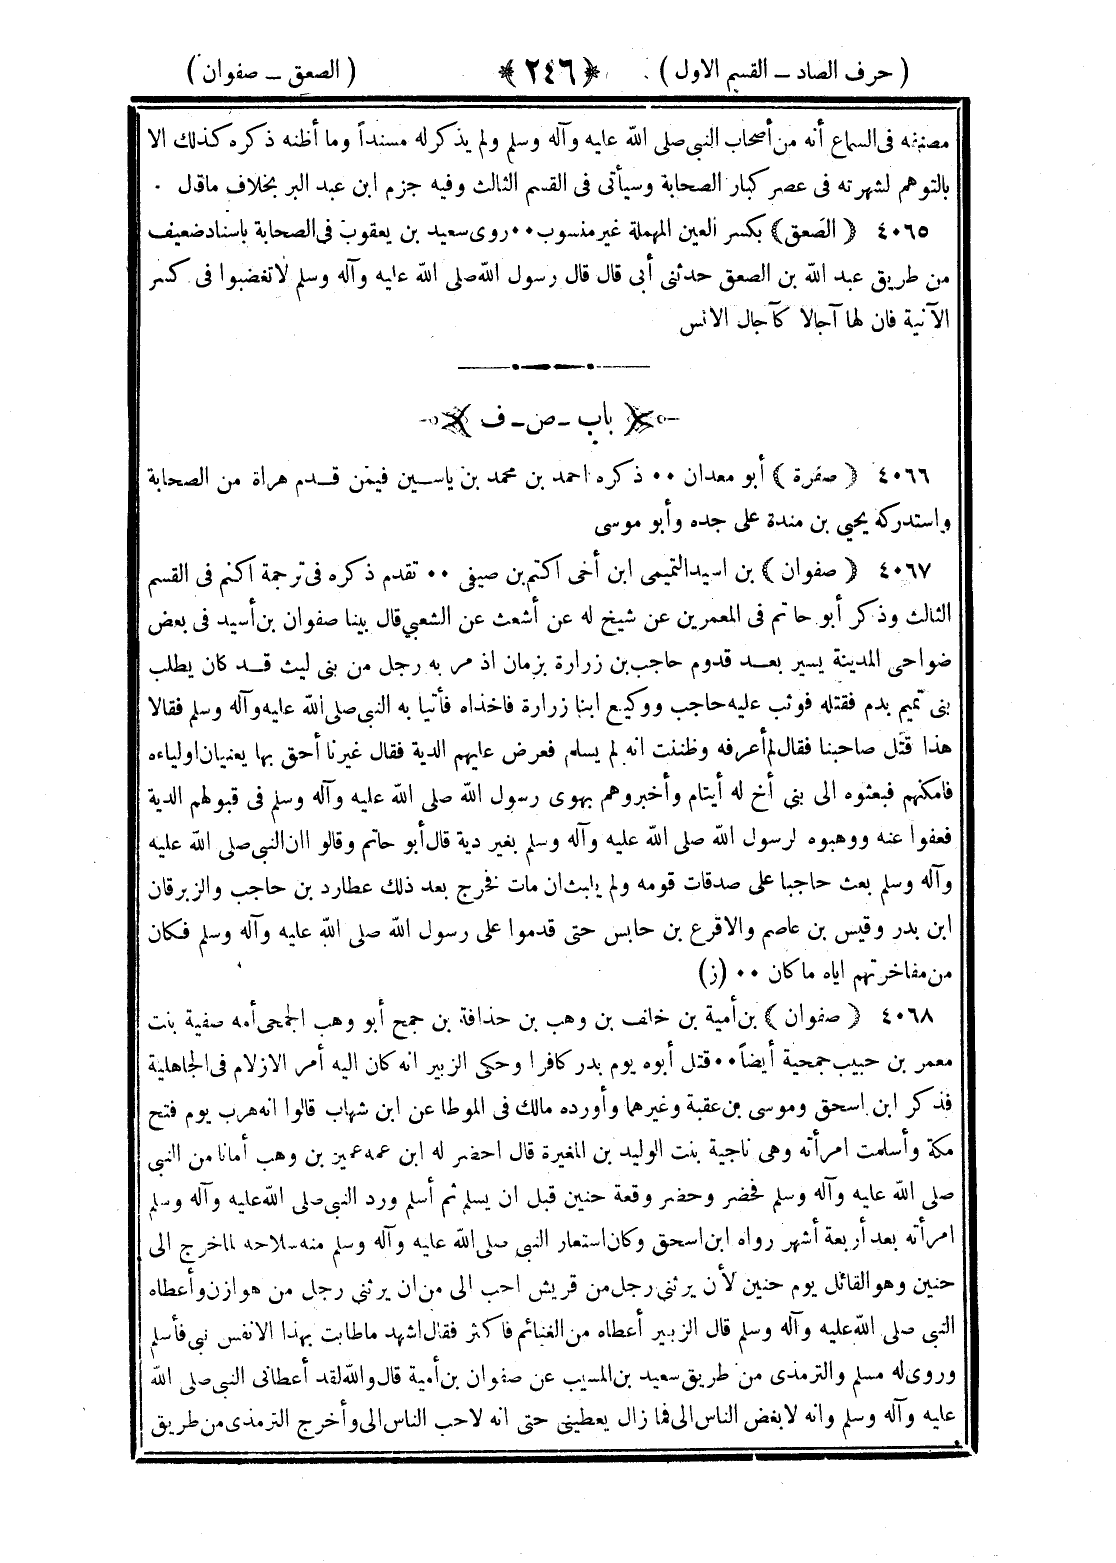 ( حرف الصاد ـ القسم الاول ) ﴿ ٢٤٦ ﴾ ( الصعق ـ صفوان )
مصنفه فى السماع أنه من أصحاب النبي صلى الله عليه وآله وسلم ولم يذكر له مسنداً وما أظنه ذكره كذلك الا
بالتوهم لشهرته فى عصر كبار الصحابة وسيأتى فى القسم الثالث وفيه جزم ابن عبد البر بخلاف ماقال .
٤٠٦٥ ﴿ الصَعق ﴾ بكسر العين المهملة غير منسوب ٠٠ روى سعيد بن يعقوب فى الصحابة باسناد ضعيف
من طريق عبد الله بن الصعق حدثنى أبى قال قال رسول الله صلى الله عليه وآله وسلم لاتغضبوا فى كسر
الآنية فان لها آجالا كآجال الانس
باب ـ ص ـ ف
٤٠٦٦ ﴿ صفرة ﴾ أبو معدان ٠٠ ذكره احمد بن محمد بن ياسين فيمن قدم هراة من الصحابة
واستدركه يحيي بن مندة على جده وأبو موسى
٤٠٦٧ ﴿ صفوان ﴾ بن اسيد التميمى ابن أخى اكثم بن صيفى ٠٠ تقدم ذكره فى ترجمة اكثم فى القسم
الثالث وذكر أبو حاتم فى المعمرين عن شيخ له عن أشعث عن الشعبي قال بينا صفوان بن أسيد فى بعض
ضواحى المدينة يسير بعد قدوم حاجب بن زرارة بزمان اذ مر به رجل من بنى ليث قد كان يطلب
بنى تميم بدم فقتله فوثب عليه حاجب ووكيع ابنا زرارة فاخذاه فأتيا به النبي صلى الله عليه وآله وسلم فقالا
هذا قتل صاحبنا فقال لم أعرفه وظننت انه لم يسلم فعرض عليهم الدية فقال غيرنا أحق بها يعنيان اولياءه
فامكنهم فبعثوه الى بنى أخ له أيتام وأخبروهم بهوى رسول الله صلى الله عليه وآله وسلم فى قبولهم الدية
فعفوا عنه ووهبوه لرسول الله صلى الله عليه وآله وسلم بغير دية قال أبو حاتم وقالو اان النبي صلى الله عليه
وآله وسلم بعث حاجبا على صدقات قومه ولم يلبث ان مات فخرج بعد ذلك عطارد بن حاجب والزبرقان
ابن بدر وقيس بن عاصم والاقرع بن حابس حتى قدموا على رسول الله صلى الله عليه وآله وسلم فكان
من مفاخرتهم اياه ماكان ٠٠ (ز)
٤٠٦٨ ﴿ صفوان ﴾ بن أمية بن خلف بن وهب بن حذافة بن جمح أبو وهب الجمحى أمه صفية بنت
معمر بن حبيب جمحية أيضاً ٠٠ قتل أبوه يوم بدر كافرا وحكى الزبير انه كان اليه أمر الازلام فى الجاهلية
فذكر ابن اسحق وموسى بن عقبة وغيرهما وأورده مالك فى الموطا عن ابن شهاب قالوا انه هرب يوم فتح
مكة وأسلمت امرأته وهى ناجية بنت الوليد بن المغيرة قال احضر له ابن عمه عمير بن وهب أمانا من النبي
صلى الله عليه وآله وسلم فحضر وحضر وقعة حنين قبل ان يسلم ثم أسلم ورد النبي صلى الله عليه وآله وسلم
امرأته بعد أربعة أشهر رواه ابن اسحق وكان استعار النبي صلى الله عليه وآله وسلم منه سلاحه لماخرج الى
حنين وهو القائل يوم حنين لأن يرثنى رجل من قريش احب الى من ان يرثنى رجل من هوازن وأعطاه
النبي صلى الله عليه وآله وسلم قال الزبير أعطاه من الغنائم فاكثر فقال اشهد ماطابت بهذا الانفس نبي فأسلم
وروى له مسلم والترمذى من طريق سعيد بن المسيب عن صفوان بن أمية قال والله لقد أعطانى النبي صلى الله
عليه وآله وسلم وانه لابغض الناس الى فما زال يعطينى حتى انه لاحب الناس الى وأخرج الترمذى من طريق